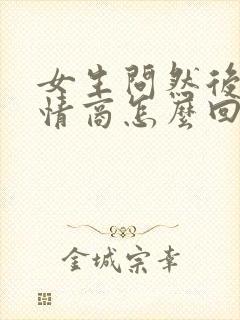 女生問然後
情商怎麼回
金城宗幸